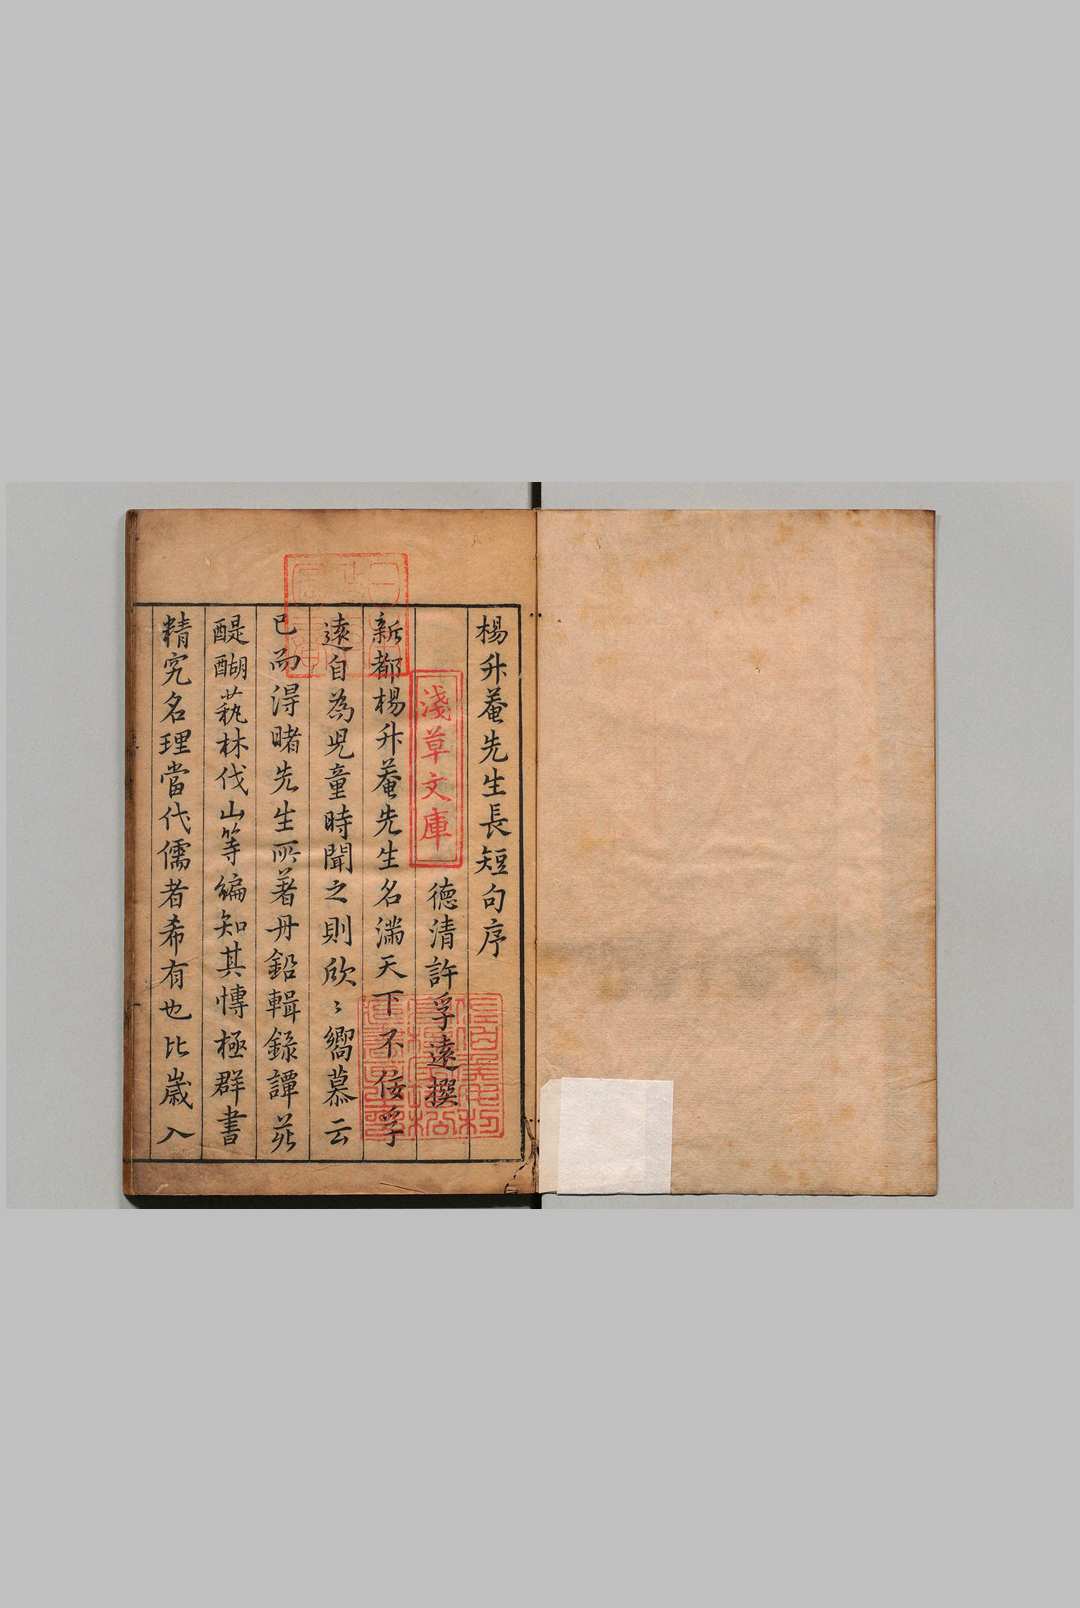 楊升菴先生長短句序
德清許孚遠撰
新都楊升菴先生名滿天下不佞孚
遠自為児童時聞之則欣〻嚮慕云
已而得睹先生所著丹鉛輯錄譚苑
醍醐蓺林伐山等編知其愽極群書
精究名理當代儒者希有也比嵗入
淺草文庫